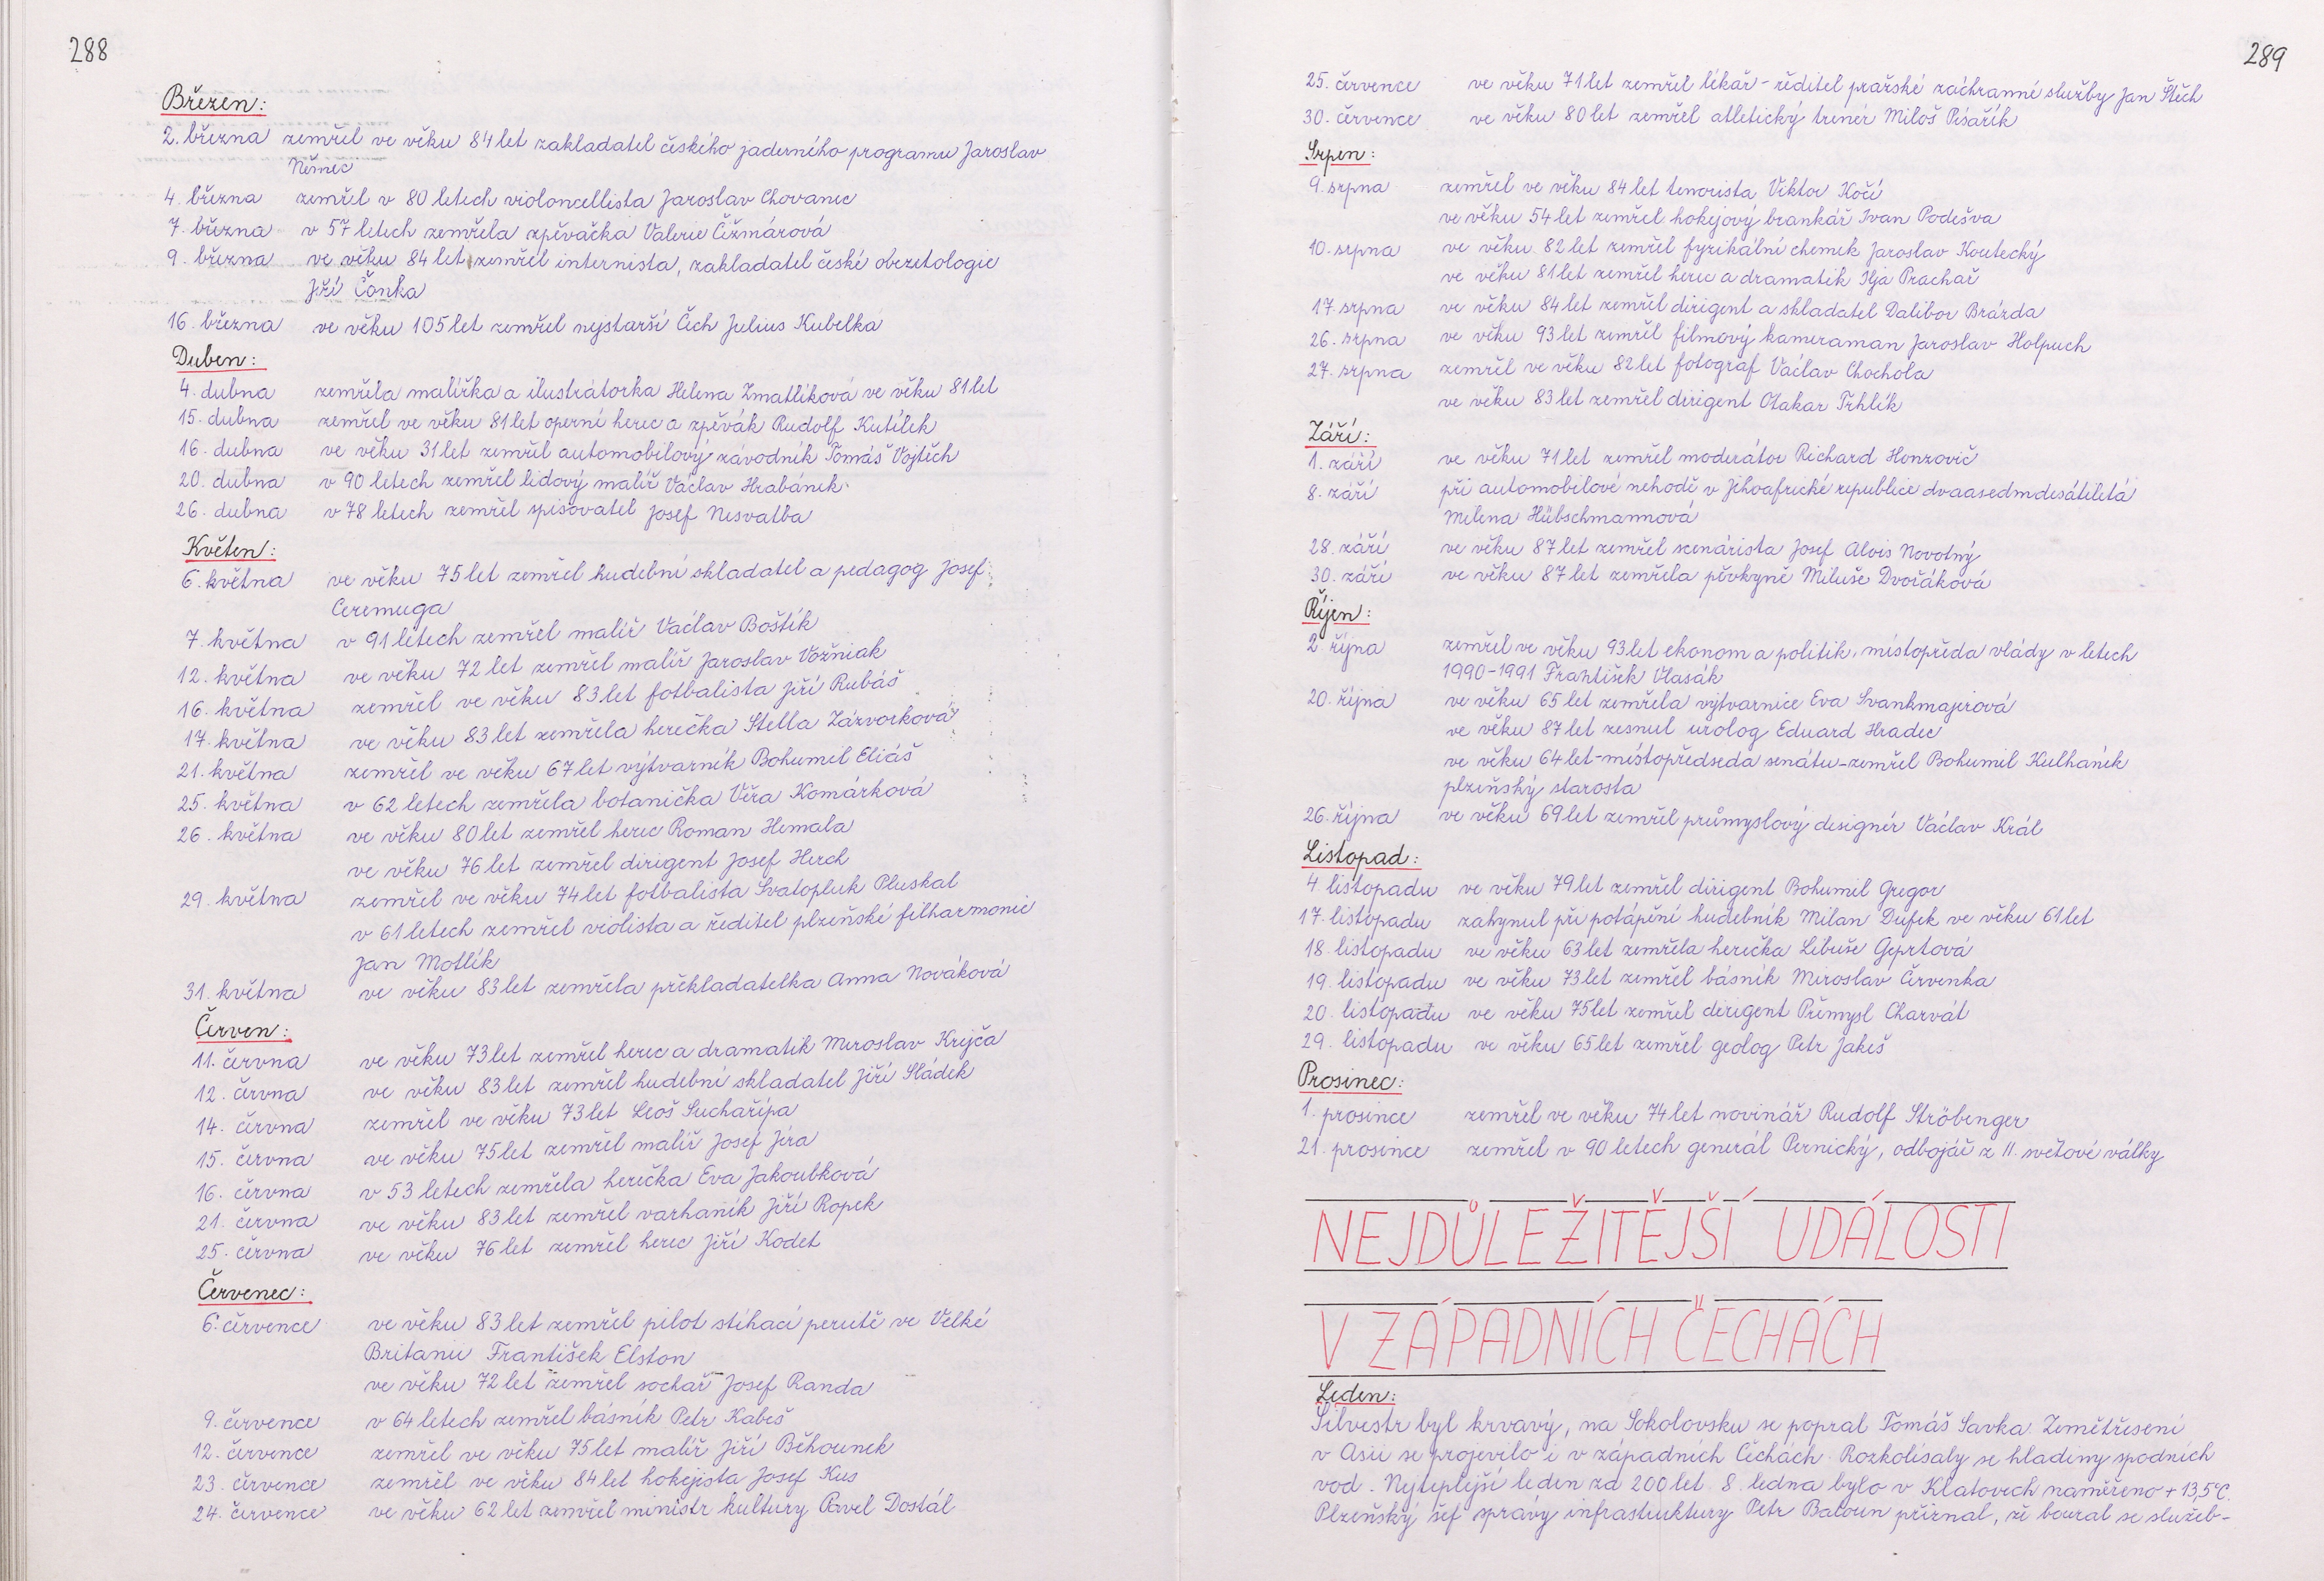 288
Březen:
2. března zemřel ve věku 84 let zakladatel českého jaderného programu Jaroslav
Němec
4. března zemřel v 80 letech violoncellista Jaroslav Chovanec
7. března v 57 letech zemřela zpěvačka Valerie Čižmárová
9. března ve věku 84 let zemřel internista, zakladatel české obezetologie
Jiří Čonka
16. března ve věku 105 let zemřel nejstarší Čech Julius Kubelka
Duben:
4. dubna zemřela malířka a ilustrátorka Helena Zmatlíková ve věku 81 let
15. dubna zemřel ve věku 81 let operní herec a zpěvák Rudolf Kutílek
16. dubna ve věku 31 let zemřel automobilový závodník Tomáš Vojtěch
20. dubna v 90 letech zemřel lidový malíř Václav Hrabánek
26. dubna v 78 letech zemřel spisovatel Josef Nesvatba
Květen:
6. května ve věku 75 let zemřel hudební skladatel a pedagog Josef
Ceremuga
7. května v 91 letech zemřel malíř Václav Boštík
12. května ve věku 72 let zemřel malíř Jaroslav Vožniak
16. května zemřel ve věku 83 let fotbalista Jiří Rubáš
17. května ve věku 83 let zemřela herečka Stella Zázvorková
21. května zemřel ve věku 67 let výtvarník Bohumil Eliáš
25. května v 62 letech zemřela botanička Věra Komárková
26. května ve věku 80 let zemřel herec Roman Hemala
ve věku 76 let zemřel dirigent Josef Herch
29. května zemřel ve věku 74 let fotbalista Svatopluk Pluskal
v 61 letech zemřel violista a ředitel plzeňské filharmonie
Jan Motlík
31. května ve věku 83 let zemřela překladatelka Anna Nováková
Červen:
11. června ve věku 73 let zemřel herec a dramatik Miroslav Krejča
12. června ve věku 83 let zemřel hudební skladatel Jiří Sládek
14. června zemřel ve věku 73 let Leoš Suchařípa
15. června ve věku 75 let zemřel malíř Josef Jíra
16. června v 53 letech zemřela herečka Eva Jakoubková
21. června ve věku 83 let zemřel varhaník Jiří Ropek
25. června ve věku 76 let zemřel herec Jiří Kodet
Červenec:
6. července ve věku 83 let zemřel pilot stíhací perutě ve Velké
Britanii František Elston
ve věku 72 let zemřel sochař Josef Randa
9. července v 64 letech zemřel básník Petr Kabeš
12. července zemřel ve věku 75 let malíř Jiří Běhounek
23. července zemřel ve věku 84 let hokejista Josef Kus
24. července ve věku 62 let zemřel ministr kultury Pavel Dostál
289
25. července ve věku 71 let zemřel lékař - ředitel pražské záchranné služby Jan Štěch
30. července ve věku 80 let zemřel atletický trenér Miloš Písařík
Srpen:
9. srpna zemřel ve věku 84 let tenorista Viktor Kočí
ve věku 54 let zemřel hokejový brankář Ivan Podešva
10. srpna ve věku 82 let zemřel fyzikální chemik Jaroslav Koutecký
ve věku 81 let zemřel herec a dramatik Ilja Prachař
17. srpna ve věku 84 let zemřel dirigent a skladatel Dalibor Brázda
26. srpna ve věku 93 let zemřel filmový kameraman Jaroslav Holpuch
27. srpna zemřel ve věku 82 let fotograf Václav Chochola
ve věku 83 let zemřel dirigent Otakar Trhlík
Září:
1. září ve věku 71 let zemřel moderátor Richard Honzovič
8. září při automobilové nehodě v Jihoafrické republice dvaasedmdesátiletá
Milena Hübschmannová
28. září ve věku 87 let zemřel scenárista Josef Alois Novotný
30. září ve věku 87 let zemřela pěvkyně Miluše Dvořáková
Říjen:
2. října zemřel ve věku 93 let ekonom a politik, místopředa vlády v letech
1990-1991 František Vlasák
20. října ve věku 65 let zemřela výtvarnice Eva Svankmajerová
ve věku 87 let zesnul urolog Eduard Hradec
ve věku 64 let - místopředseda senátu - zemřel Bohumil Kulhánek
plzeňský starosta
26. října ve věku 69 let zemřel průmyslový designér Václav Král
Listopad:
4. listopadu ve věku 79 let zemřel dirigent Bohumil Gregor
17. listopadu zahynul při potápění hudebník Milan Dufek ve věku 61 let
18. listopadu ve věku 63 let zemřela herečka Libuše Geprtová
19. listopadu ve věku 73 let zemřel básník Miroslav Červenka
20. listopadu ve věku 75 let zemřel dirigent Přemysl Charvát
29. listopadu ve věku 65 let zemřel geolog Petr Jakeš
Prosinec:
1. prosince zemřel ve věku 74 let novinář Rudolf Ströbenger
21. prosince zemřel v 90 letech generál Pernický, odbojář z II. světové války
NEJDŮLEŽITĚJŠÍ UDÁLOSTI
V ZÁPADNÍCH ČECHÁCH
Leden:
Silvestr byl krvavý, na Sokolovsku se popral Tomáš Savka. Zemětřesení
v Asii se projevilo i v západních Čechách. Rozkolísaly se hladiny spodních
vod. Nejteplejší leden za 200 let. 8. ledna bylo v Klatovech naměřeno + 13,5°C.
Plzeňský šéf správy infrastruktury Petr Baloun přiznal, že boural se služeb-